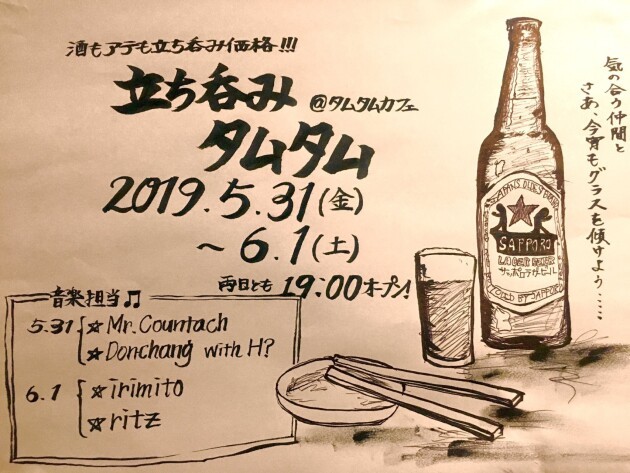 酒もアテも立ち呑み価格!!!
立ち呑み @タムタムカフェ
タムタム
2019.5.31(金)
~6.1(土)
両日とも 19:00オープン!
気の合う仲間と
さあ、今宵もグラスを傾けよう……
音楽担当♫
5.31 ☆Mr.Countach
☆Donchang with H?
6.1 ☆irimito
☆ritz
SAPPORO
LAGER BEER
サッポロラガービール